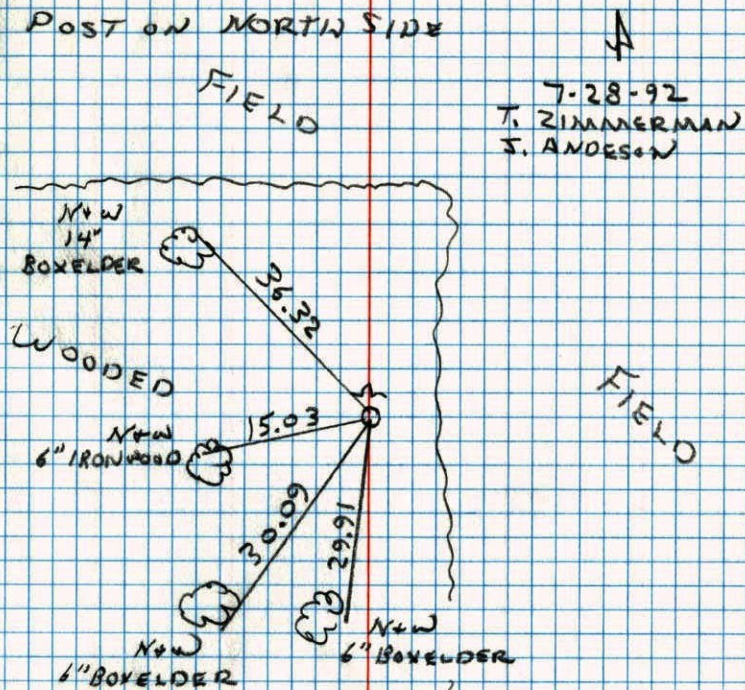 POST ON NORTH SIDE
FIELD
7-28-92
T. ZIMMERMAN
J. ANDESON
N+W
14"
BOXELDER
36.32
WOODED
FIELD
15.03
N+W
6" IRONWOOD
30.09
29.91
N+W
6" BOXELDER
N+W
6" BOXELDER